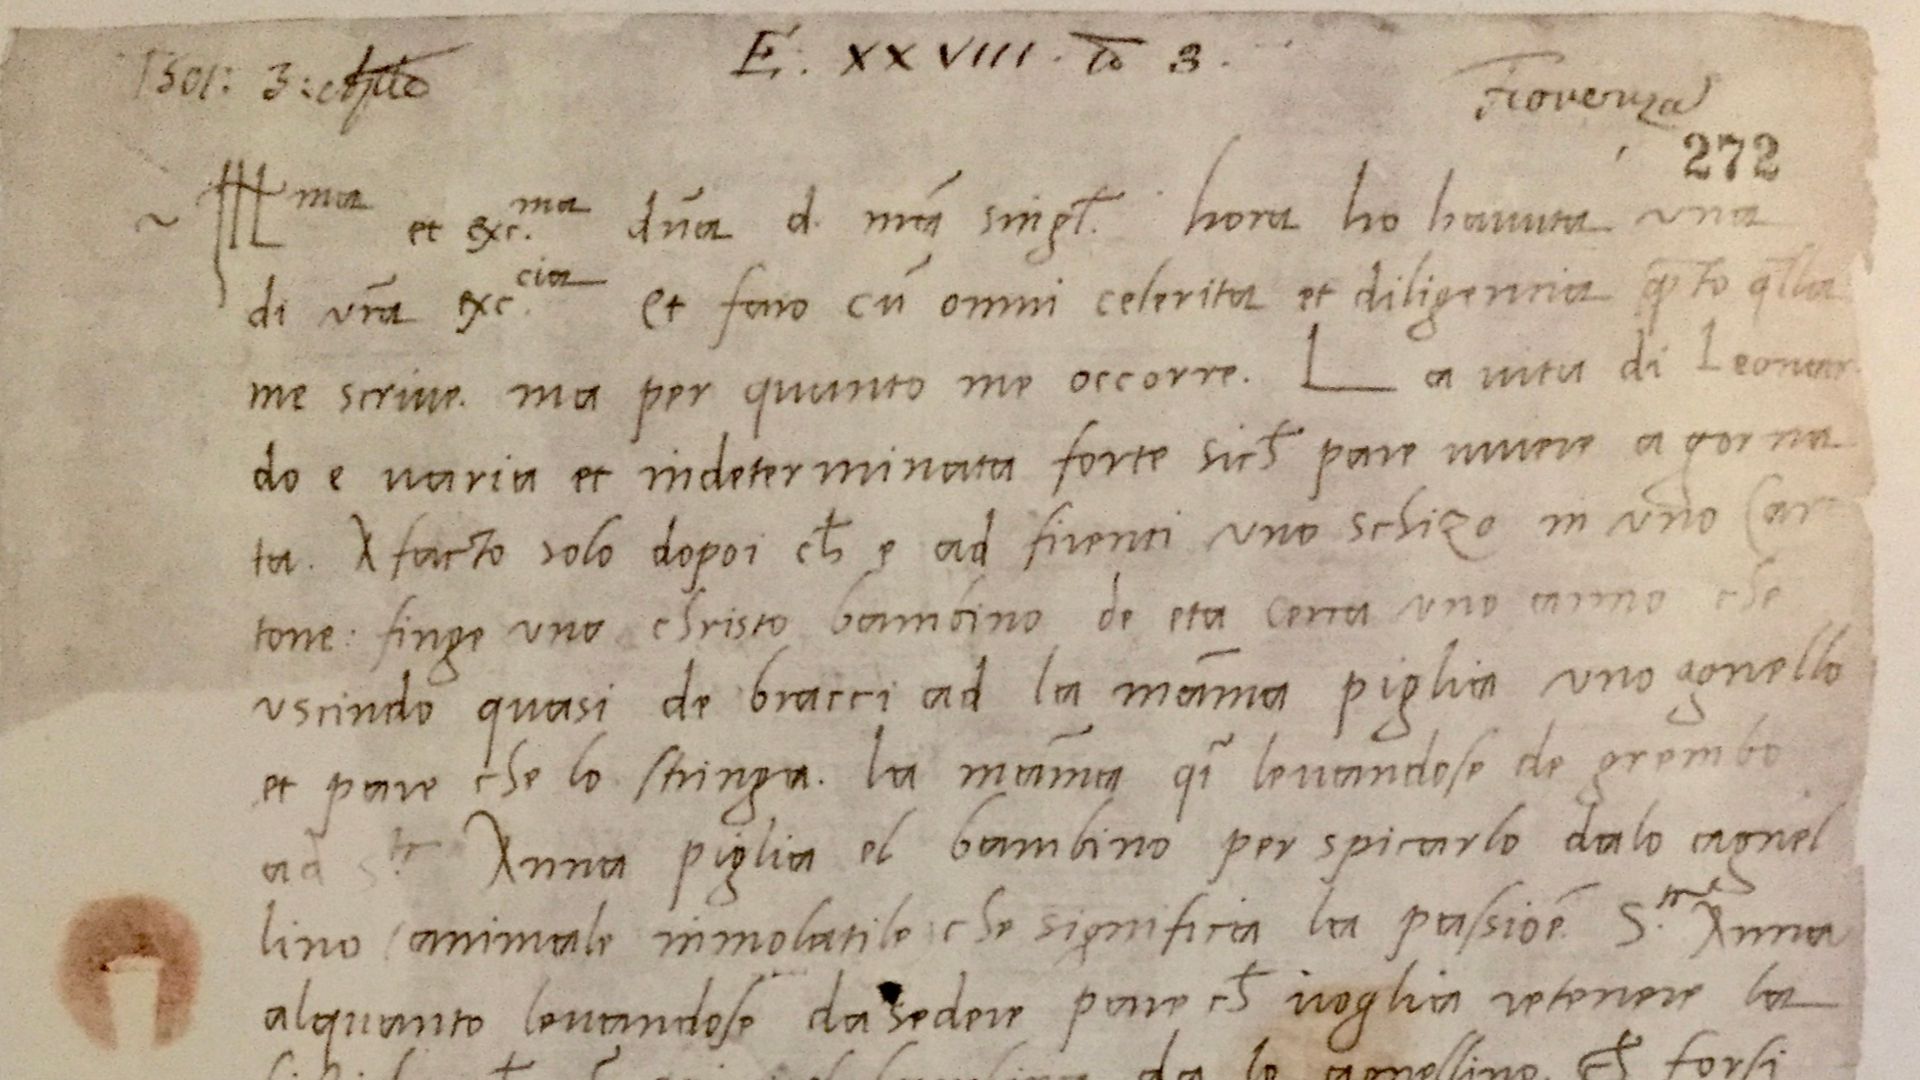 1501: 3: aprile
E. XXVIII. to 3.
Fiorenza
272
Ill ma et exc. ma dña d. mia singl. hora ho hauuta una
di vra exc. cia Et faro cũ omni celerita et diligencia qto qlla
me scriue. ma per quanto me occorre. La uita di Leonar
do e uaria et indeterminata forte sich pare uiuere a gorna
ta. A facto solo dopoi ch e ad firenci uno schizo in uno Car
tone: finge uno christo bambino de eta cerca uno anno che
uscindo quasi de bracci ad la mãma piglia uno agnello
et pare che lo stringa. la mãma qi leuandose de grembo
ad S. ta Anna piglia el bambino per spicarlo dalo agnel
lino (animale inmolatile) che significa la passiõe. S. ta Anna
alquanto leuandose da sedere pare ch uoglia retenere la
da lo agnellino. ch forsi